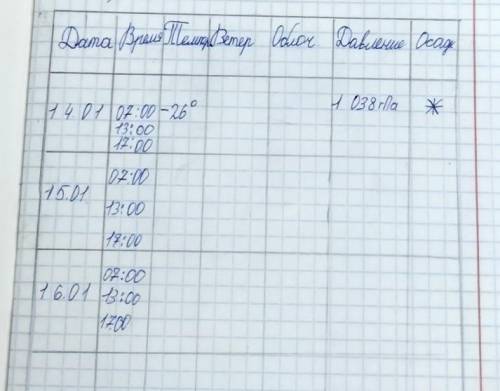 Дата Время Темпер Ветер Облач Давление Осадк
14.01 07:00 -26° 1 038 гПа *
13:00
17:00
07:00
15.01
13:00
17:00
07:00
16.01 13:00
1700